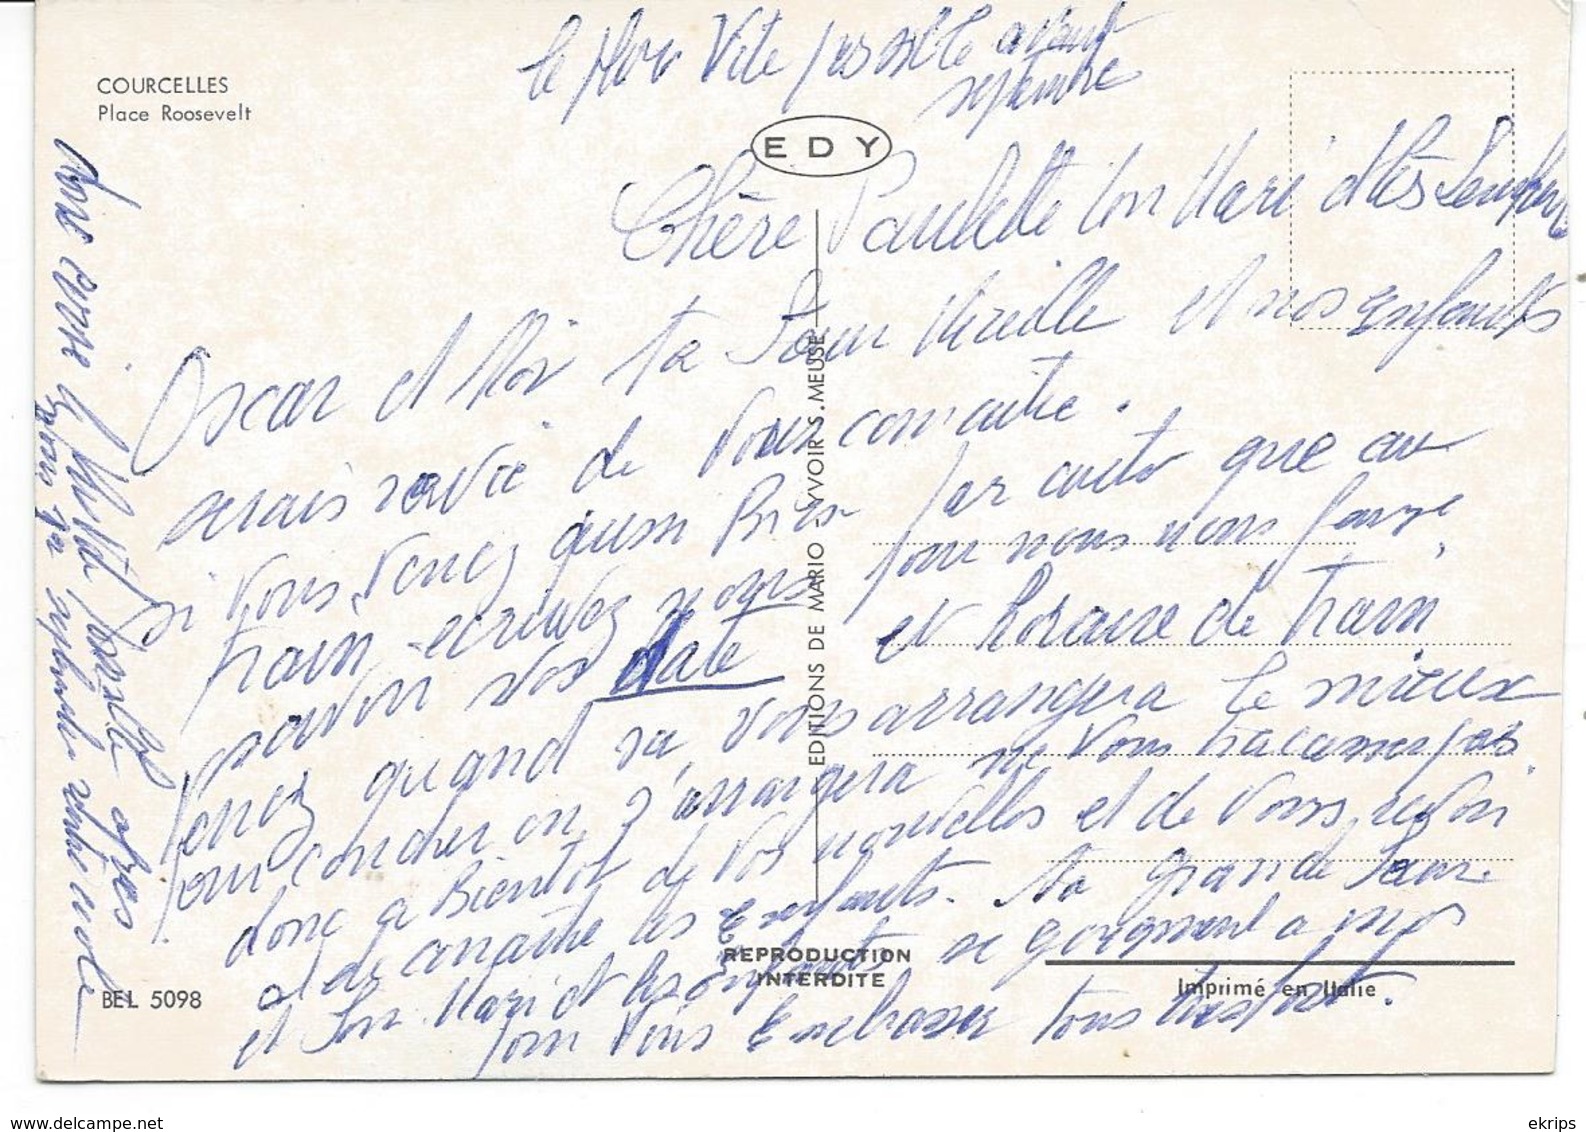 le plus Vite possible avant
septembre
COURCELLES
Place Roosevelt
EDY
Chère Paulette Ton Mari et les
Oscar et Moi ta Soeur Mireille et nos Enfants
serais ravie de Vous connaitre.
si Vous Venez aussi Bien par auto que au
train ecrivez nous pour nous nous
savoir Vos date et horaire de train
Venez quand sa Vous arrangera le mieux
pour coucher on s'arrangera ne Vous tracasser pas
donc a Bientot de Vos nouvelles et de Vous revoir
et de connaitre les Enfants. ta grande Soeur
et Son Mari et les enfants se joignent a moi
pour Vous Embrasser tous tres fort.
possible apres
sa septembre rentre ecole
EDITIONS DE MARIO - YVOIR S. MEUSE
REPRODUCTION
INTERDITE
Imprimé en Italie
BEL 5098
www.delcampe.net
ekrips